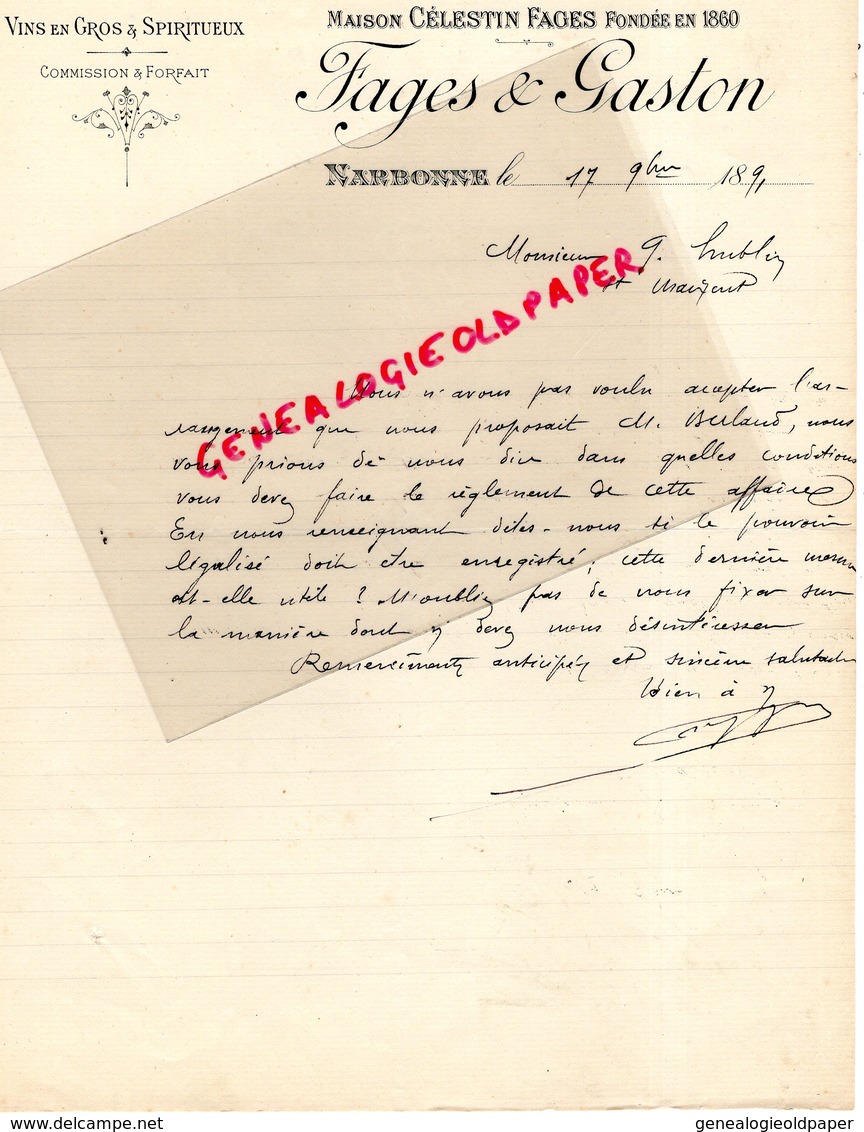 Vins en Gros & Spiritueux
Commission & Forfait
Maison Célestin Fages Fondée en 1860
Fages & Gaston
Narbonne le 17 9bre 1891
Monsieur G. Hublin
St Maixent
GENEALOGIEOLDPAPER
Nous n'avons pas voulu accepter l'ar-
rangement que nous proposait M. , nous
vous prions de nous dire dans quelles conditions
vous devez faire le règlement de cette affaire
En nous renseignant dites-nous si le pouvoir
légalisé doit être enregistré; cette dernière mesure
est-elle utile ? N'oubliez pas de nous fixer sur
la manière dont devez nous désintéresser
Remerciements anticipés et sincères salutations
bien à
delcampe.net
genealogieoldpaper